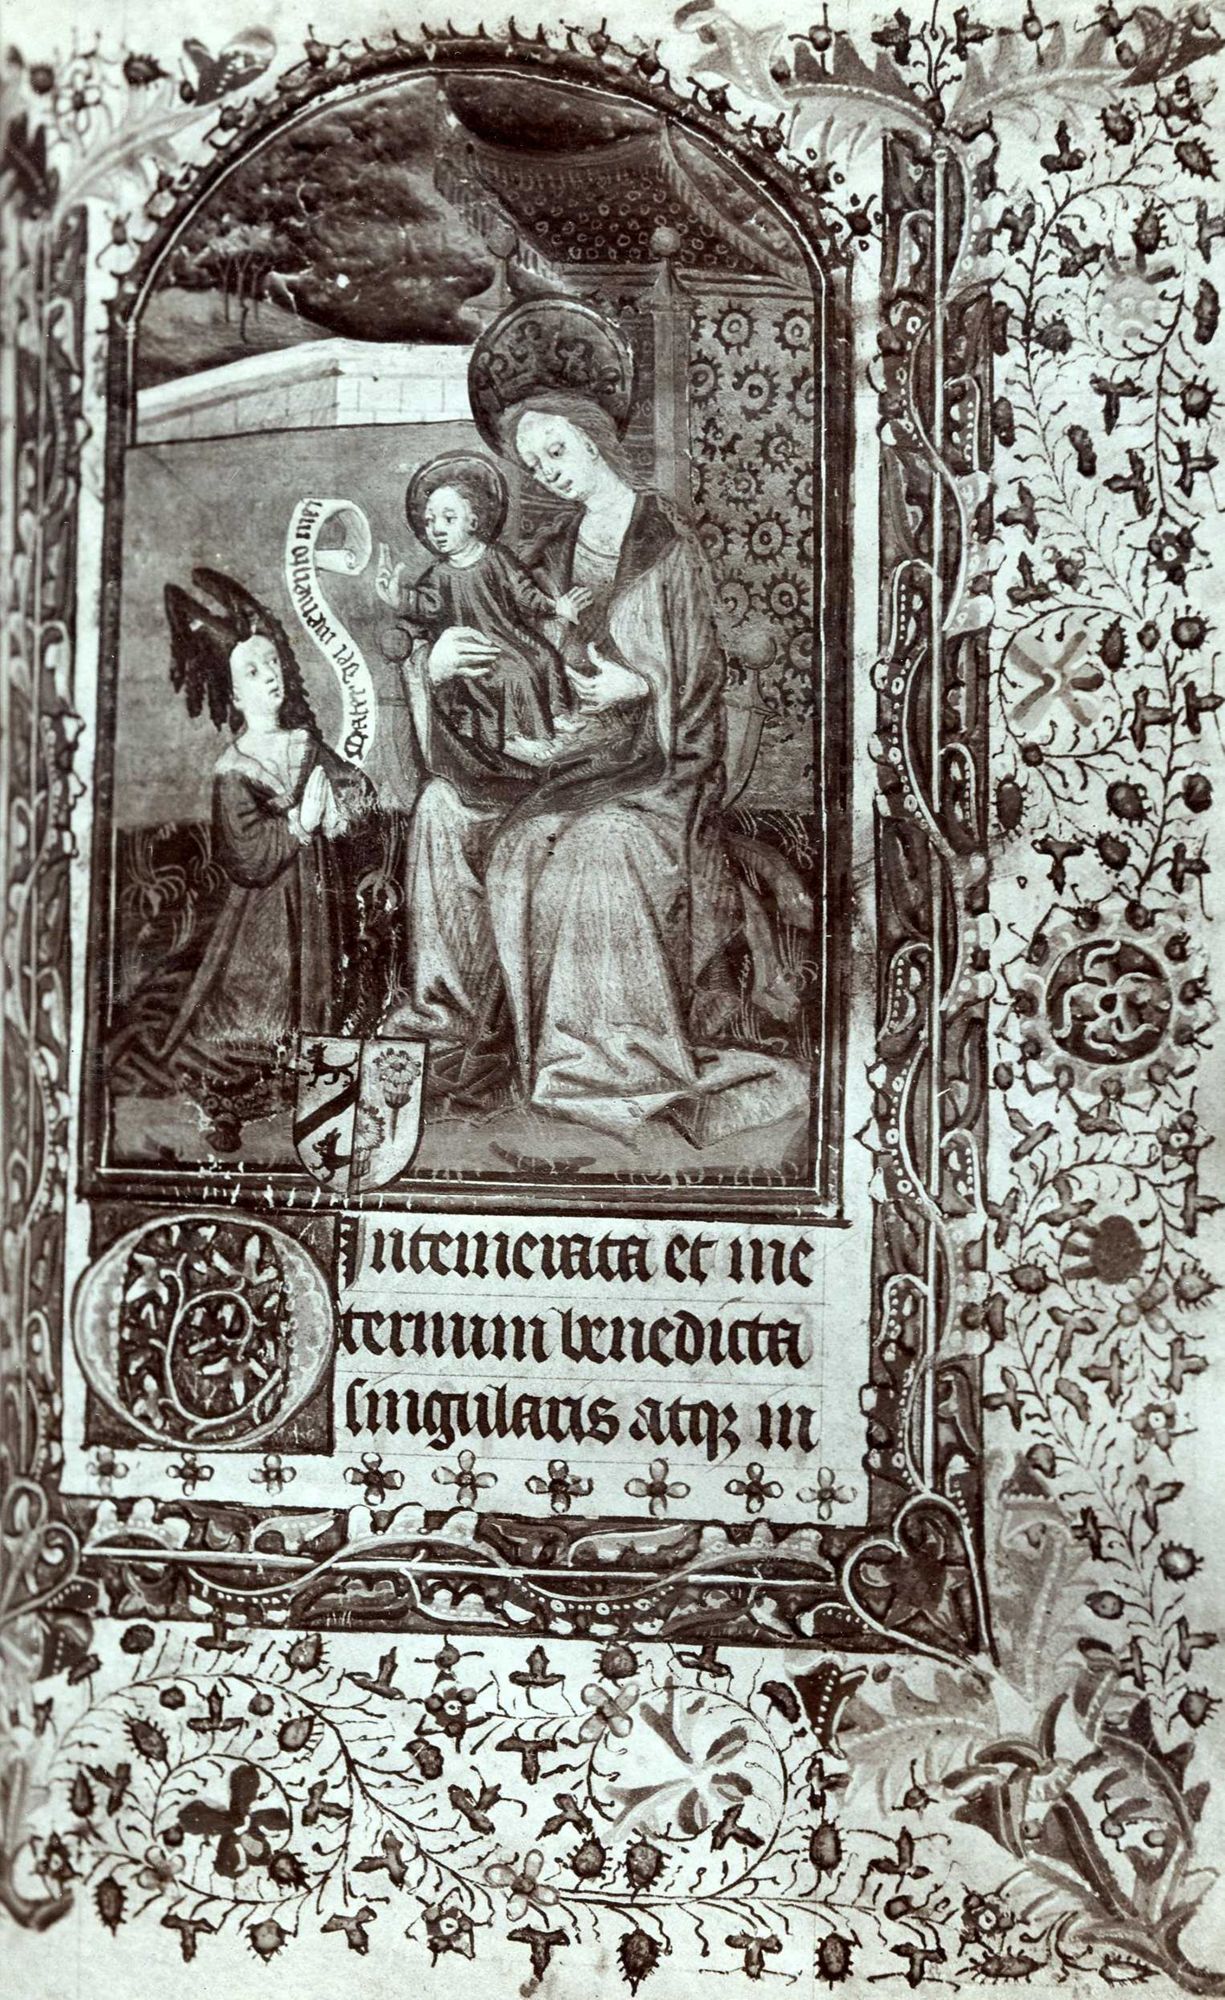 Mater dei memento mei
O Intemerata et in e
ternum benedicta
singularis atqꝫ in